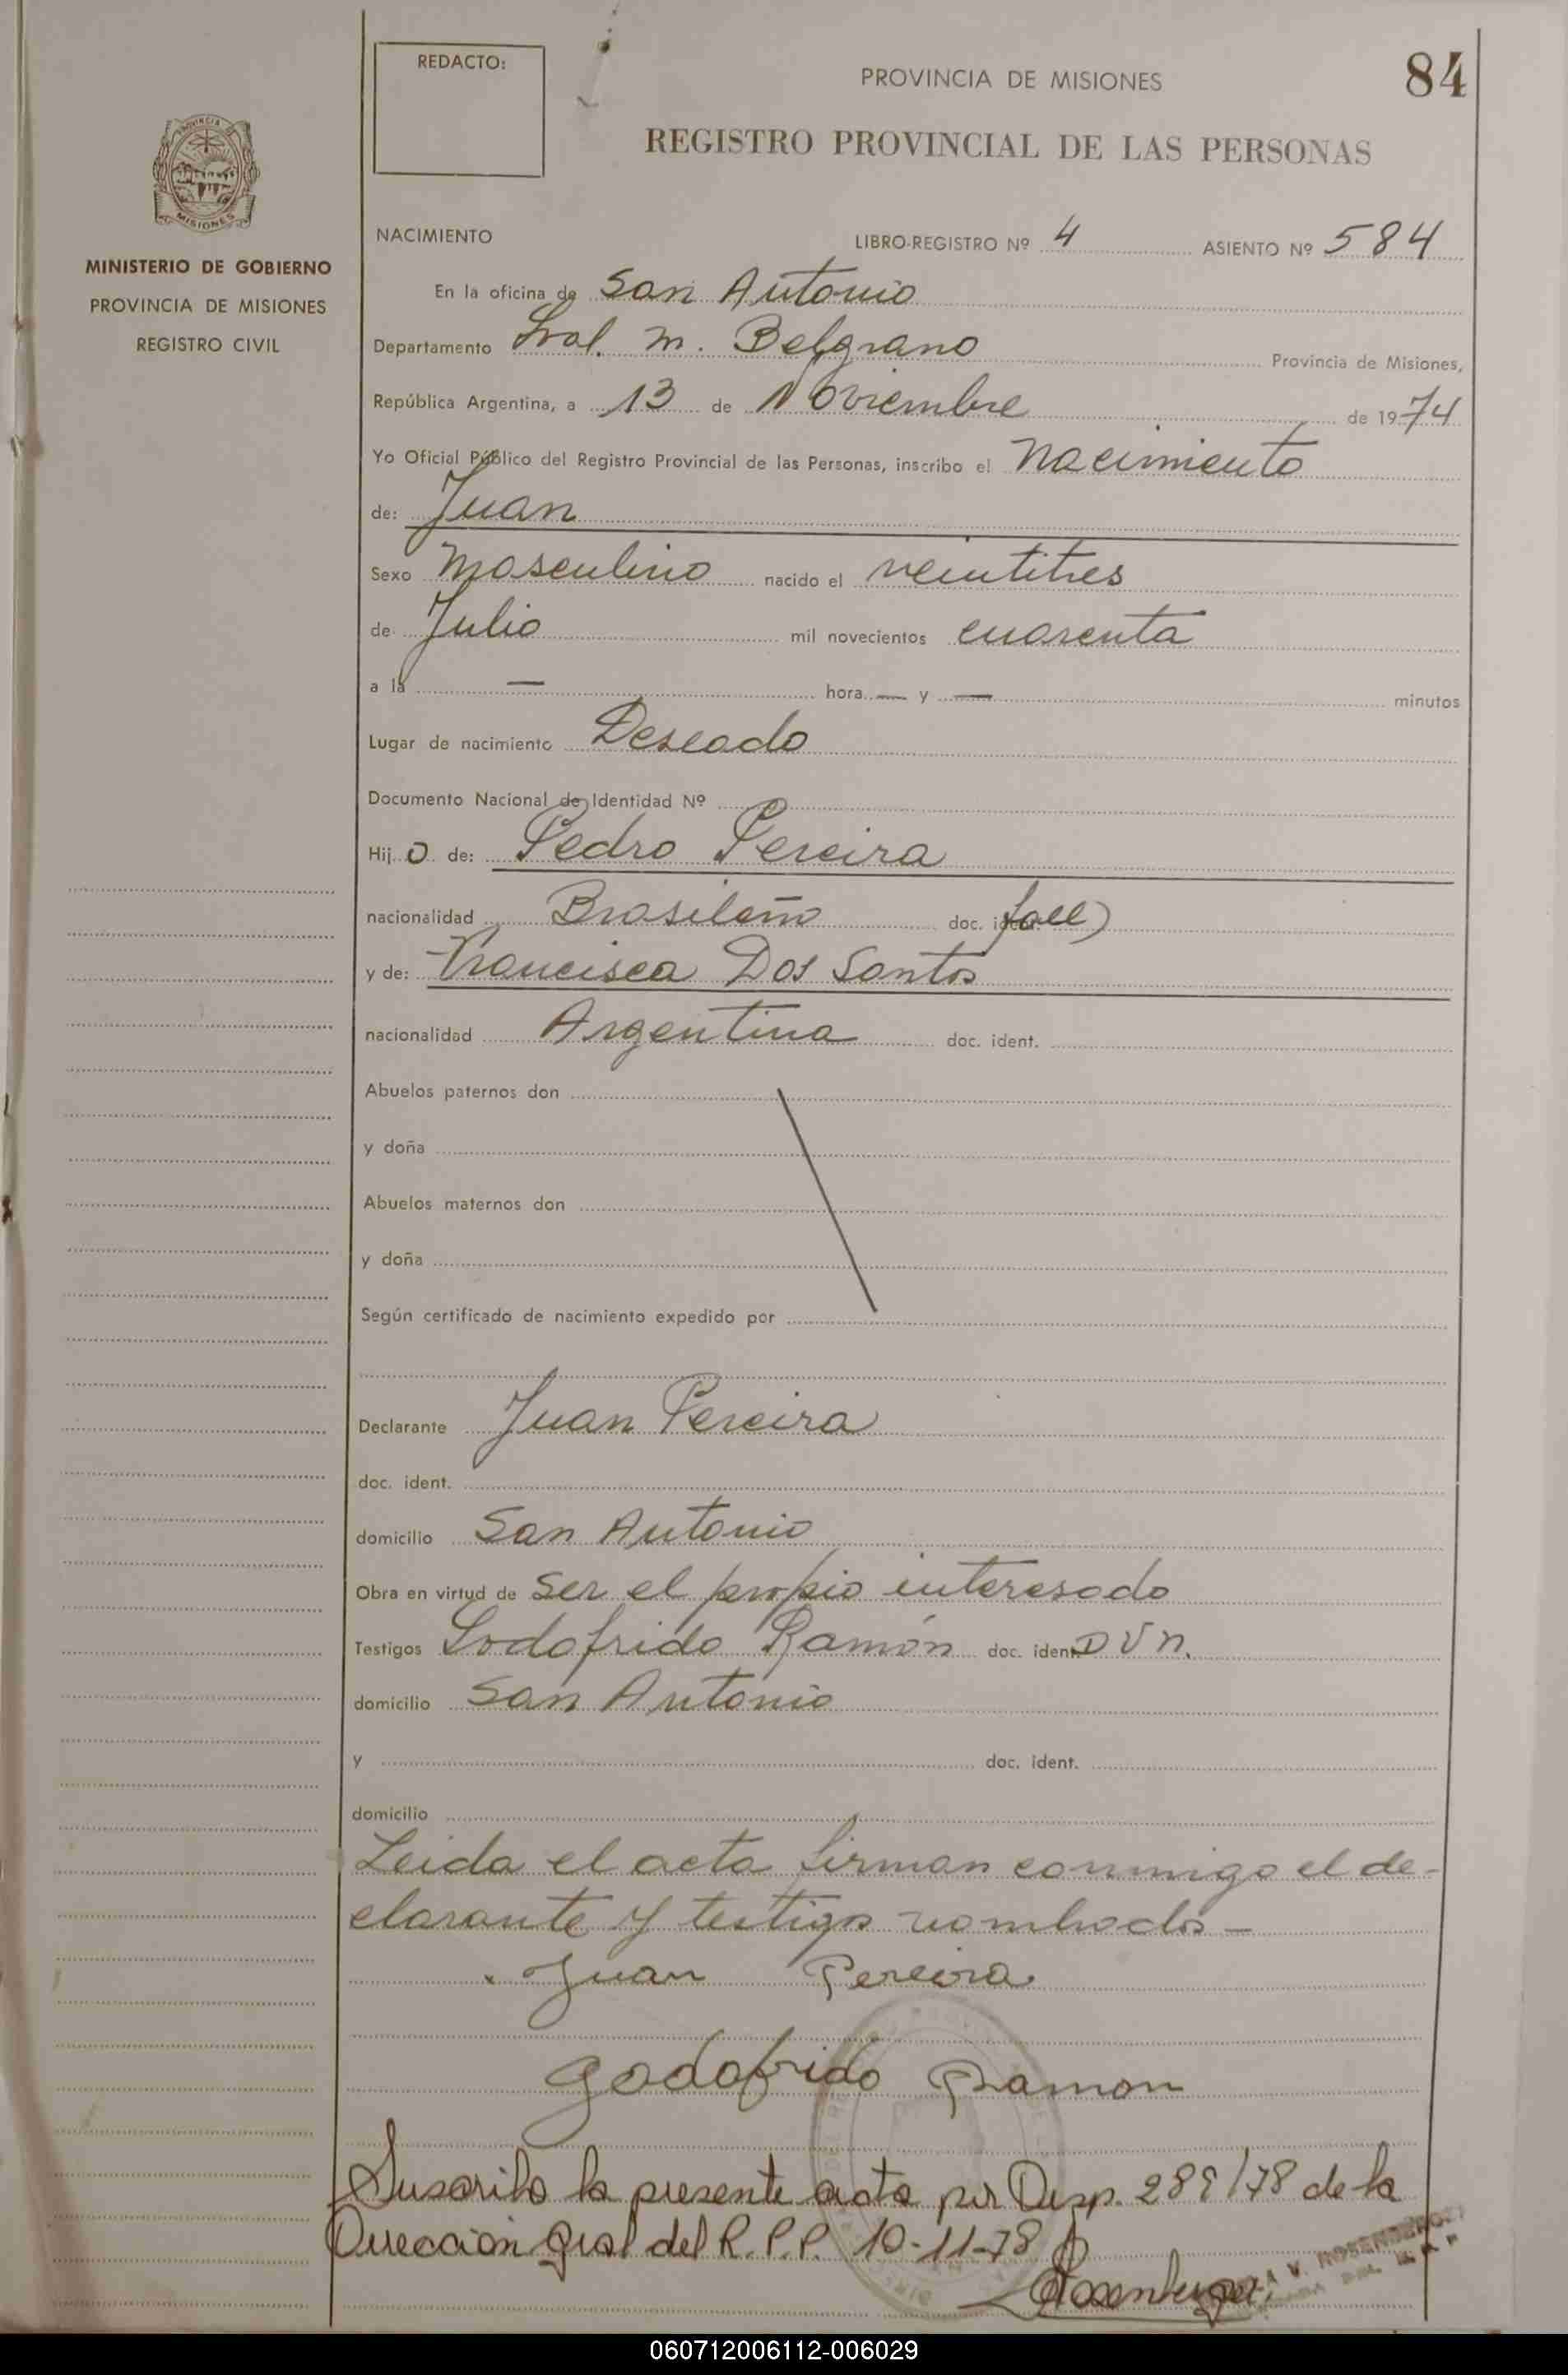 REDACTO:
PROVINCIA DE MISIONES
84
REGISTRO PROVINCIAL DE LAS PERSONAS
MISIONES
MINISTERIO DE GOBIERNO
PROVINCIA DE MISIONES
REGISTRO CIVIL
NACIMIENTO LIBRO-REGISTRO Nº 4 ASIENTO Nº 584
En la oficina de San Antonio
Departamento Gral. M. Belgrano Provincia de Misiones,
República Argentina, a 13 de Noviembre de 1974
Yo Oficial Público del Registro Provincial de las Personas, inscribo el nacimiento
de: Juan
Sexo masculino nacido el veintitres
de Julio mil novecientos cuarenta
a la — hora — y — minutos
Lugar de nacimiento Deseado
Documento Nacional de Identidad Nº
Hij o de: Pedro Pereira
nacionalidad Brasileño doc. ident. fall)
y de: Francisca Dos Santos
nacionalidad Argentina doc. ident.
Abuelos paternos don
y doña
Abuelos maternos don
y doña
Según certificado de nacimiento expedido por
Declarante Juan Pereira
doc. ident.
domicilio San Antonio
Obra en virtud de ser el propio interesado
Testigos Godofrido Ramón doc. ident. D V n.
domicilio San Antonio
y doc. ident.
domicilio
Leida el acta firman conmigo el de-
clarante y testigo nombrado —
Juan Pereira
Godofrido Ramon
Suscribo la presente acta por Disp. 289/78 de la
Dirección Gral del R.P.P. 10-11-78
Rosenberger
V. ROSENBERGER
060712006112-006029